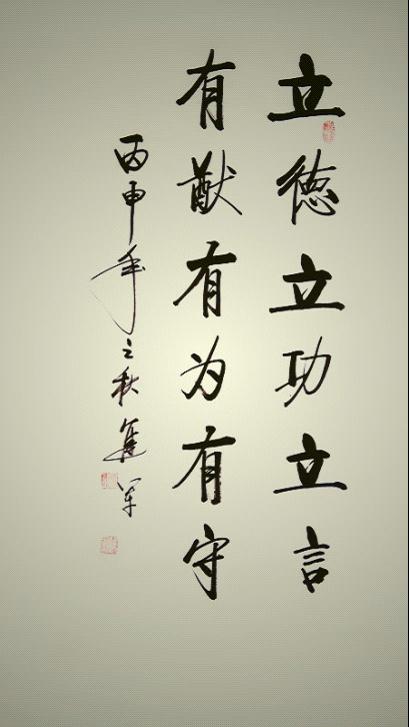 立德立功立言
有猷有为有守
丙申年之秋建军